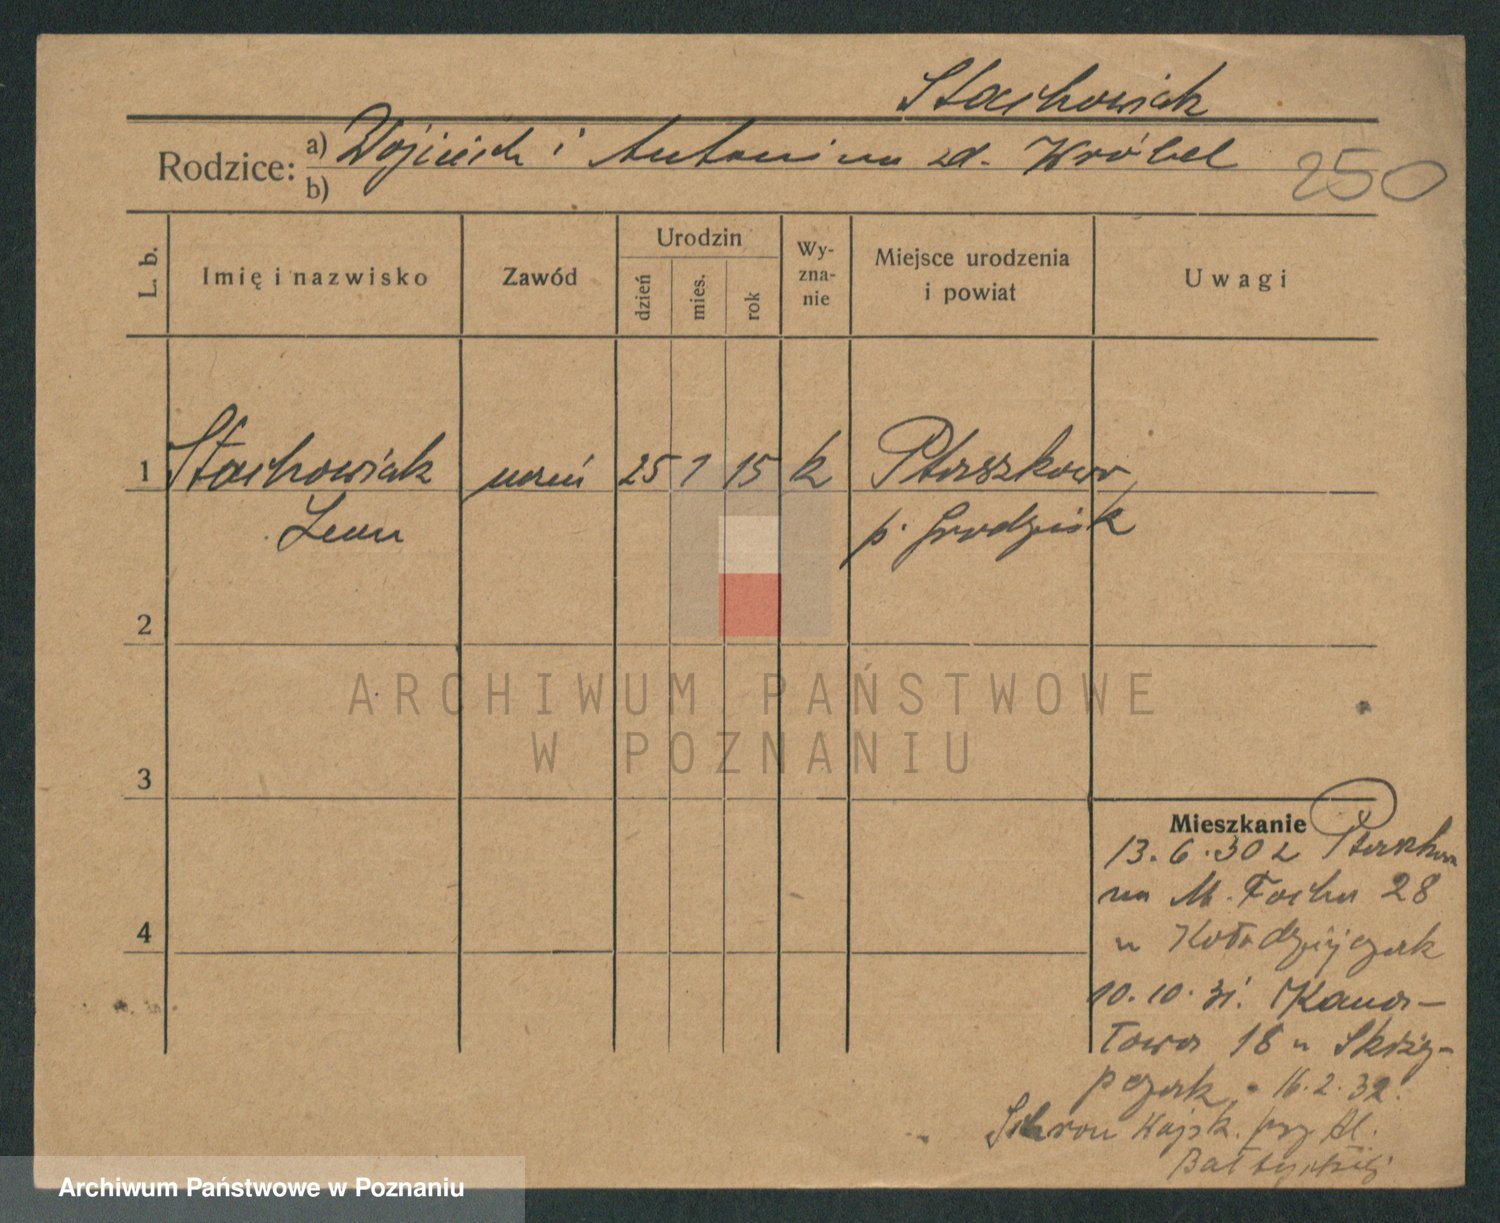 Stachowiak
Rodzice: a) Wojciech i Antonina zd. Wróbel
b)
250
L. b.
Imię i nazwisko
Zawód
Urodzin
dzień
mies.
rok
Wy-
zna-
nie
Miejsce urodzenia
i powiat
Uwagi
1 Stachowiak uczeń 25 1 15 k Ptaszkowo,
Leon p. Grodzisk
2
3
4
ARCHIWUM PAŃSTWOWE
W POZNANIU
Mieszkanie
13.6.30 z Ptaszkowa
na M. Focha 28
u Kołodziejczak
10.10.31. Kana-
łowa 18 u Skrzy-
pczak. 16.2.32.
Schron Wojsk. przy Al.
Bałtyckiej
Archiwum Państwowe w Poznaniu